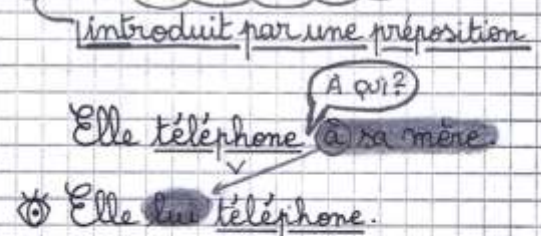 introduit par une préposition
A qui?
Elle téléphone à sa mère.
V
Elle lui téléphone.